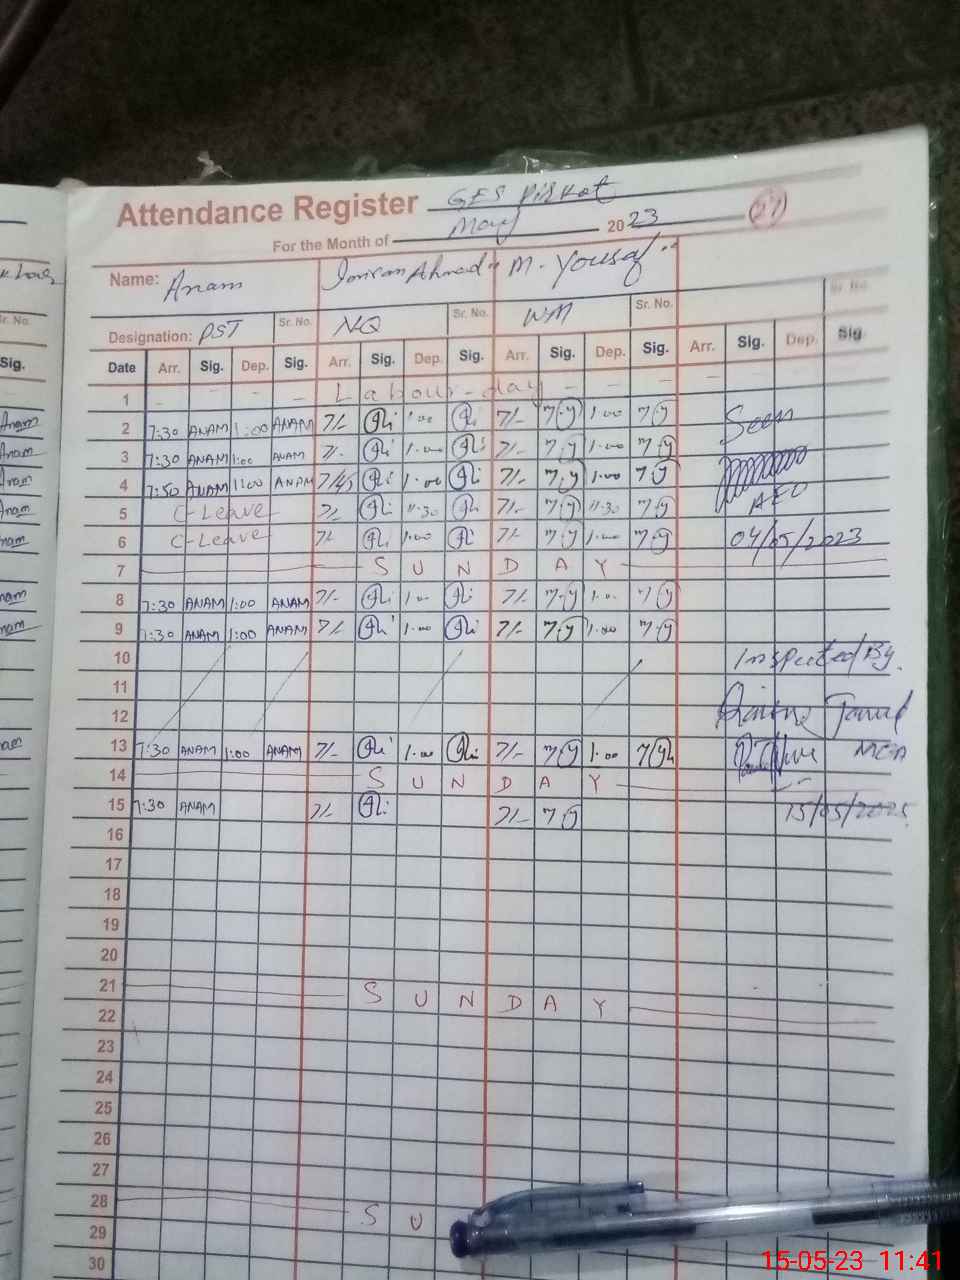 Attendance Register GES Pirkot
For the Month of May 2023 (27)
Name: Anam Imran Ahmad M. Yousaf
Designation: PST Sr. No. NQ Sr. No. WM Sr. No. Sr. No.
Date Arr. Sig. Dep. Sig. Arr. Sig. Dep. Sig. Arr. Sig. Dep. Sig. Arr. Sig. Dep. Sig.
1 Labour-day
2 7:30 ANAM 1:00 ANAM 7/- 1:00 7/- 7-y 1:00 7-y Seen
3 7:30 ANAM 1:00 ANAM 7/- 1:00 7/- 7-y 1:00 7-y
4 7:50 ANAM 1:00 ANAM 7/45 1:00 7/- 7-y 1:00 7-y AEO
5 C-Leave 7/- 11:30 7/- 7-y 11:30 7-y
6 C-Leave 7/- 1:00 7/- 7-y 1:00 7-y 04/05/2023
7 SUNDAY
8 7:30 ANAM 1:00 ANAM 7/- 1:00 7/- 7-y 1:00 7-y
9 7:30 ANAM 1:00 ANAM 7/- 1:00 7/- 7-y 1:00 7-y
10 Inspected By
11
12
13 7:30 ANAM 1:00 ANAM 7/- 1:00 7/- 7-y 1:00 7-y MEA
14 SUNDAY
15 7:30 ANAM 7/- 7/- 7-y 15/05/2023
16
17
18
19
20
21 SUNDAY
22
23
24
25
26
27
28 SU
29
30
15-05-23 11:41